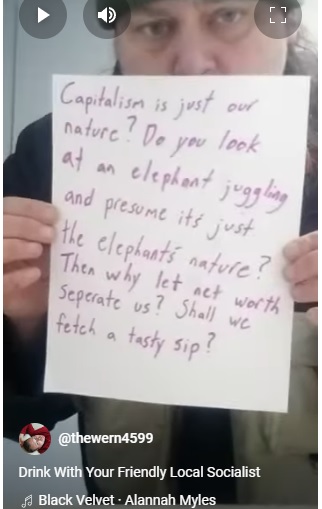 Capitalism is just our
nature? Do you look
at an elephant juggling
and presume its just
the elephant's nature?
Then why let net worth
seperate us? Shall we
fetch a tasty sip?
@thewern4599
Drink With Your Friendly Local Socialist
Black Velvet · Alannah Myles